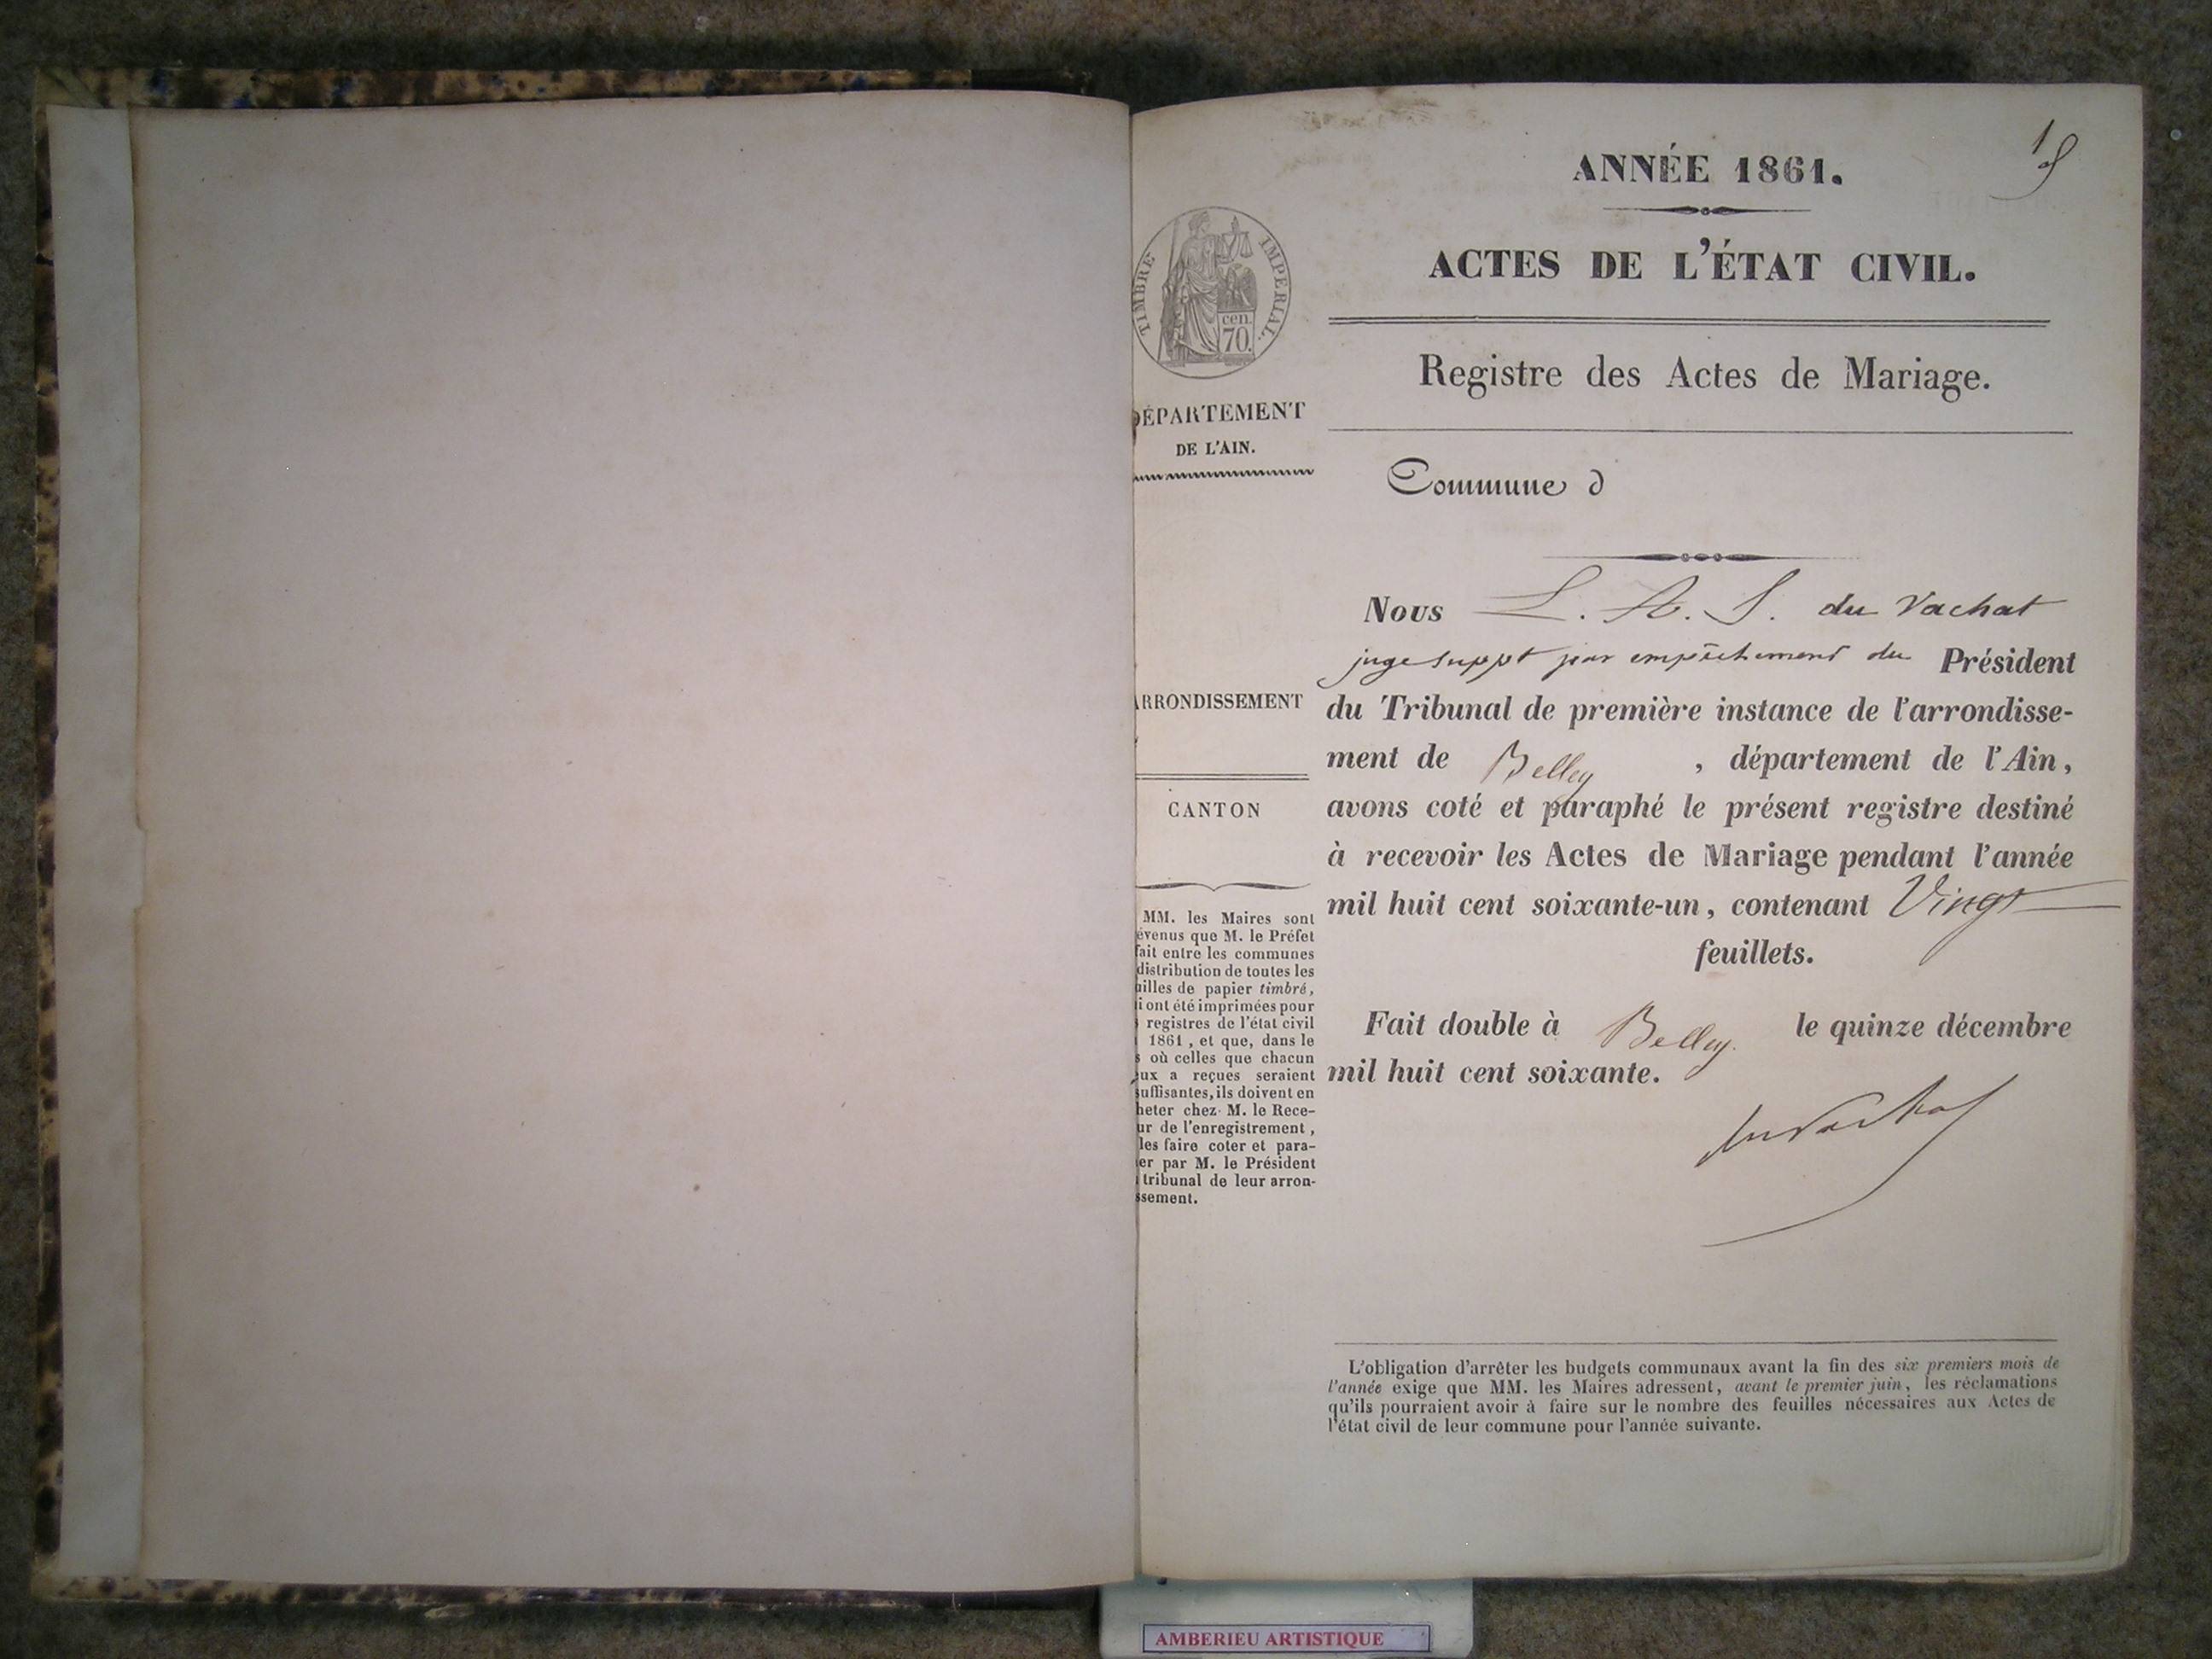 1
ANNÉE 1861.
ACTES DE L'ÉTAT CIVIL.
Registre des Actes de Mariage.
Commune d
Nous L. A. S. du Vachat
juge suppt par empêchement du Président
du Tribunal de première instance de l'arrondisse-
ment de Belley , département de l'Ain,
avons coté et paraphé le présent registre destiné
à recevoir les Actes de Mariage pendant l'année
mil huit cent soixante-un, contenant Vingt
feuillets.
Fait double à Belley. le quinze décembre
mil huit cent soixante.
du Vachat
L'obligation d'arrêter les budgets communaux avant la fin des six premiers mois de
l'année exige que MM. les Maires adressent, avant le premier juin, les réclamations
qu'ils pourraient avoir à faire sur le nombre des feuilles nécessaires aux Actes de
l'état civil de leur commune pour l'année suivante.
TIMBRE IMPERIAL.
cen.
70.
DÉPARTEMENT
DE L'AIN.
ARRONDISSEMENT
CANTON
MM. les Maires sont
évenus que M. le Préfet
fait entre les communes
distribution de toutes les
uilles de papier timbré,
i ont été imprimées pour
s registres de l'état civil
1861, et que, dans le
s où celles que chacun
eux a reçues seraient
suffisantes, ils doivent en
heter chez M. le Rece-
ur de l'enregistrement,
les faire coter et para-
er par M. le Président
tribunal de leur arron-
ssement.
AMBERIEU ARTISTIQUE